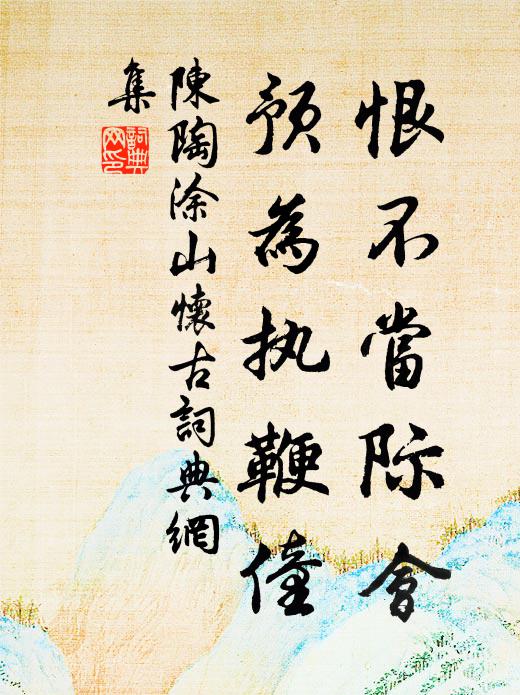 恨不當际會
預為执鞭僮
陳陶涂山懷古詞典網
集
詞典
网印